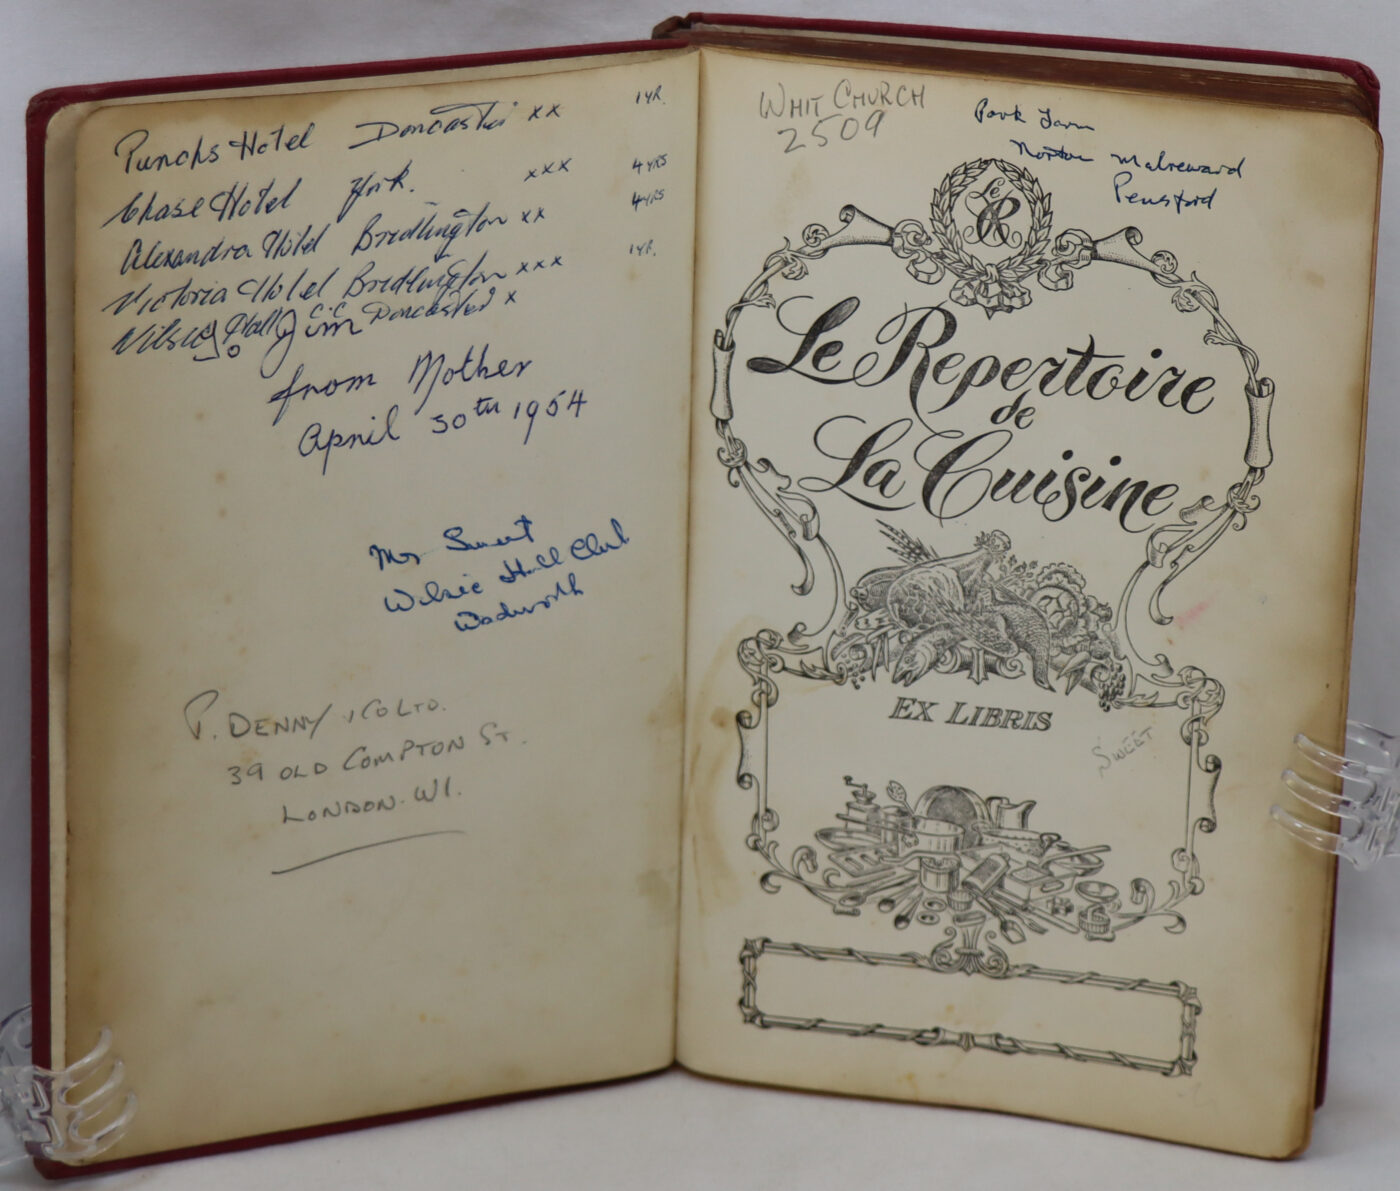 Punchs Hotel Doncaster xx 1 YR.
Chase Hotel York. xxx 4 YRS
Alexandra Hotel Bridlington xx 4 YRS
Victoria Hotel Bridlington xxx 1 YR.
Wilsic Hall C.C Doncaster x
To Jim
from Mother
April 30th 1954
Mr Sweet
Wilsic Hall Club
Wadworth
P. DENNY & CO LTD.
39 OLD COMPTON ST.
LONDON. W1.
WHIT CHURCH
2509
Park Farm
Norton Malreward
Pensford
Le R
Le Repertoire
de
La Cuisine
EX LIBRIS
SWEET